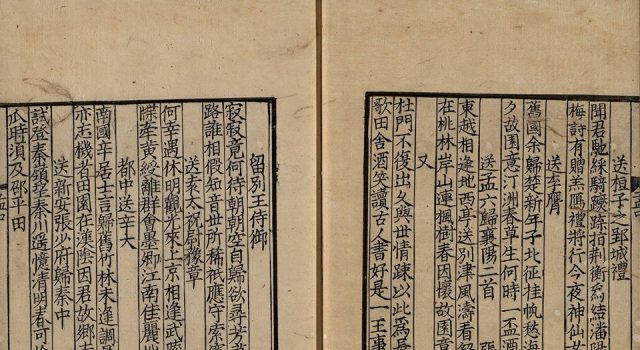 送桓子之郢城禮
聞君馳綵騎躞蹀指荆衡爲結潘陽
梅詩有贈羔鴈禮將行今夜神仙女
送李膺
舊國余歸楚新年子北征挂帆愁海
夕故園意汀洲春草生何時一盃酒
送孟六歸襄陽二首 張
東越相逢地西亭送別津風濤看解
在桃林岸山連楓樹春因懷故園意
又
杜門不復出久與世情踈以此爲長
歌田舍酒笑讀古人書好是一王事
留別王侍御
寂寂竟何待朝朝空自歸欲尋芳草
路誰相假知音世所稀秖應守索寞
送袁太祝尉豫章
何幸遇休明觀光來上京相逢武陵
牒産黄綬離群會墨卿江南佳麗
都中送辛大
南國辛居士言歸舊竹林未逢調鼎
亦忘機者田園在漢陰因君故鄉
送新安張少府歸秦中
試登秦嶺望秦川遥憶清明春可
瓜時須及邵平田